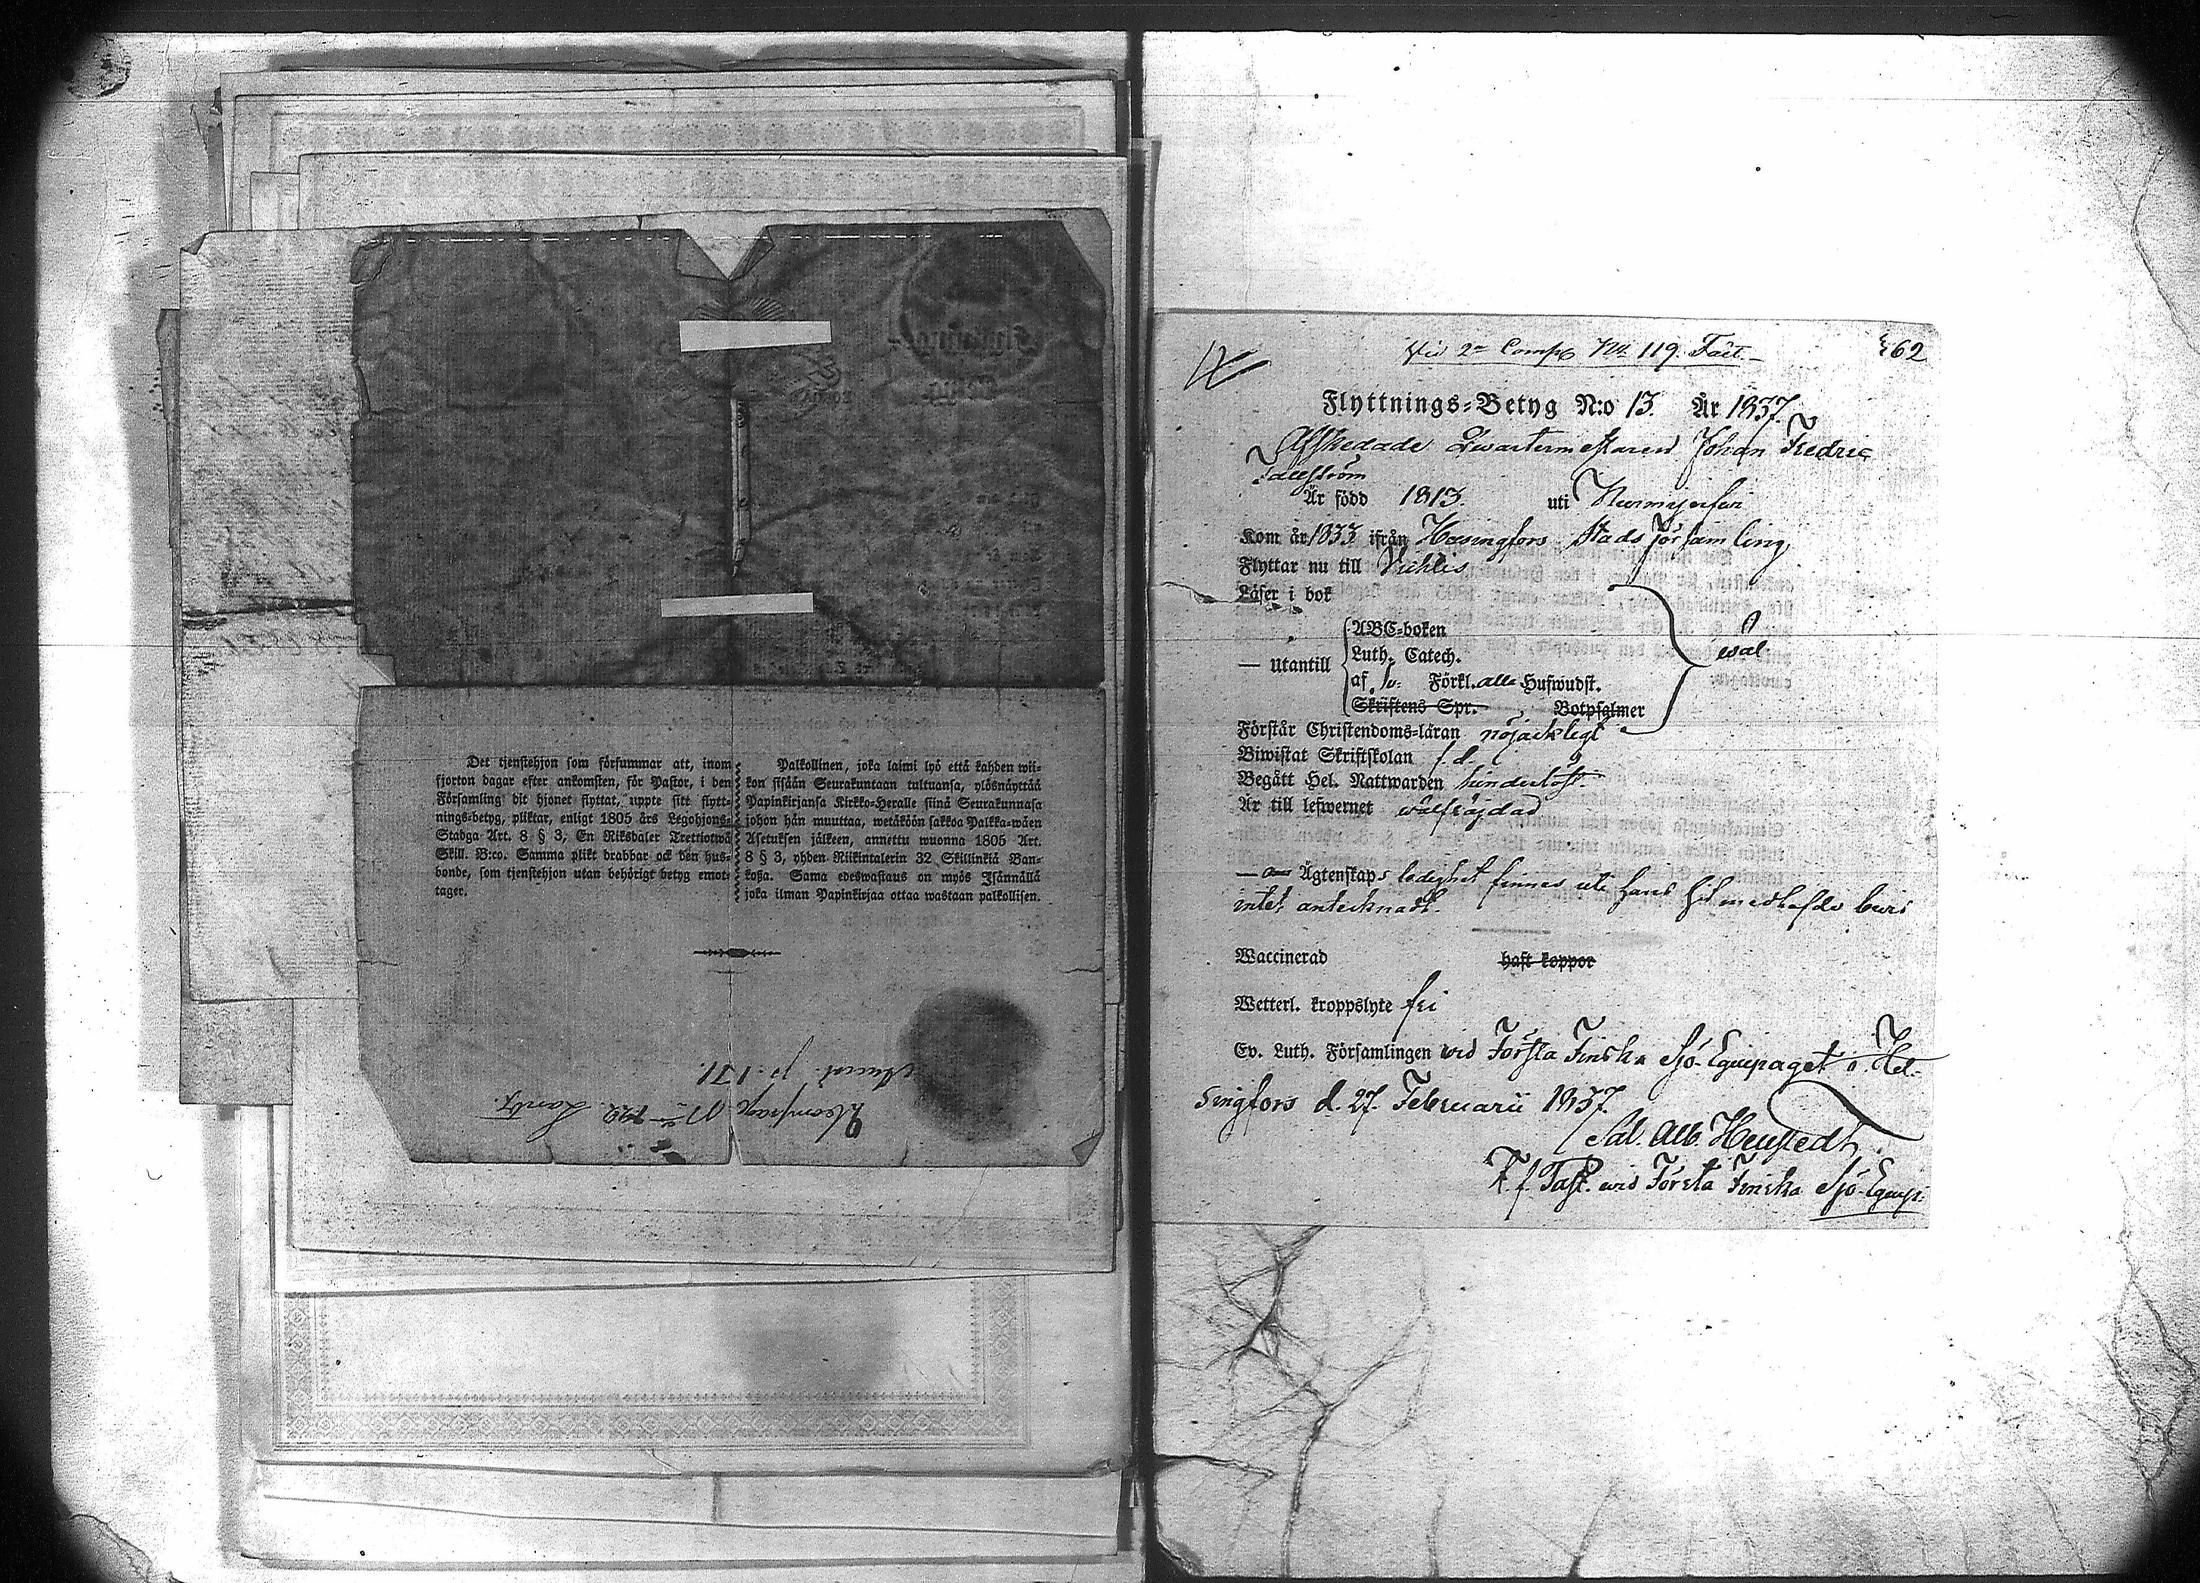 Det tjenstehjon som försummar att, inom
fjorton dagar efter ankomsten, för Pastor, i den
Församling dit hjonet flyttat, uppte sitt flytt-
nings-betyg, pliktar, enligt 1805 års Legohjons-
Stadga Art. 8 § 3, En Riksdaler Trettiotwå
Skill. B:co. Samma plikt drabbar ock den hus-
bonde, som tjenstehjon utan behörigt betyg emot-
tager.
Palkollinen, joka laimi lyö että kahden wii-
kon sisään Seurakuntaan tultuansa, ylösnäyttää
Papinkirjansa Kirkko-Heralle siinä Seurakunnasa
johon hän muuttaa, wetäköön sakkoa Palkka-wäen
Asetuksen jälkeen, annettu wuonna 1805 Art.
8 § 3, yhden Riikintalerin 32 Skillinkiä Ban-
koßa. Sama edeswastaus on myös Isännällä
joka ilman Papinkirjaa ottaa wastaan palkollisen.
2 Compagn N:o
p. 171.
2:a Comp No 119.
462
Flyttnings-Betyg N:o 13. År 1837.
Afskedade Qwartermästaren Johan Fredric
Är född 1813. uti Nurmijerfvi
Kom år 1833 ifrån Helsingfors Stads Församling
Flyttar nu till Vichtis
Läser i bok
— utantill
ABC-boken
Luth. Catech.
af Förkl. alla Hufwudst.
Skriftens Spr. Botpsalmer
wäl
Förstår Christendoms-läran nöjacktligt
Biwistat Skriftskolan f. d.
Begått Hel. Nattwarden hinderlöst.
Är till lefwernet wälfräjdad
— Ägtenskaps ledighet finnes uti hans hit medhafde bewis
intet antecknadt.
Waccinerad haft koppor
Wetterl. kroppslyte fri
Ev. Luth. Församlingen wid Första Finska Sjö-Equipaget i Hel-
singfors d. 27. Februarii 1837.
Sal. Alb.
Past. wid Första Finska Sjö-Equip.